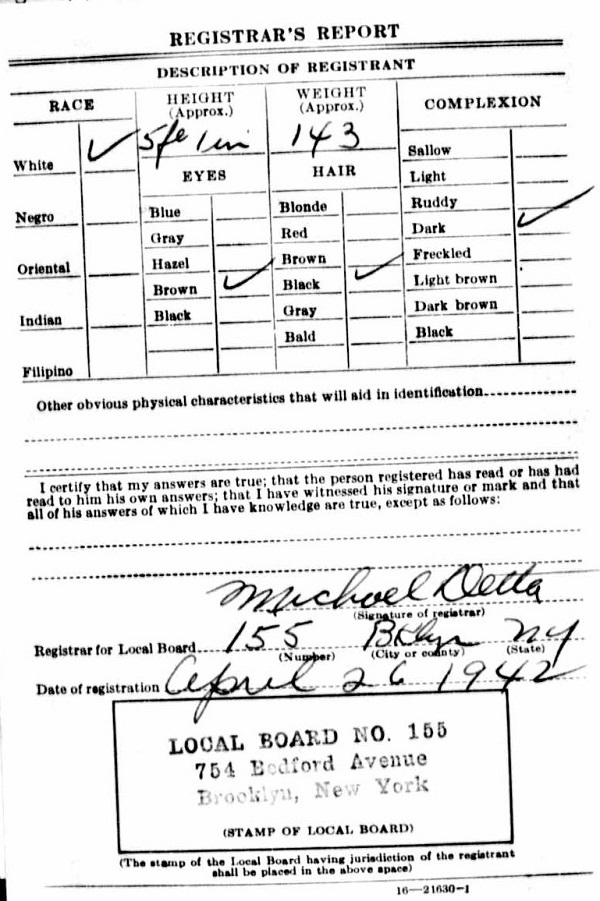 REGISTRAR'S REPORT
DESCRIPTION OF REGISTRANT
RACE
HEIGHT
(Approx.)
WEIGHT
(Approx.)
COMPLEXION
White ✓
5 ft 1 in
143
Sallow
EYES
HAIR
Light
Negro
Blue
Blonde
Ruddy
Gray
Red
Dark ✓
Oriental
Hazel
Brown
Freckled
Brown ✓
Black ✓
Light brown
Indian
Black
Gray
Dark brown
Bald
Black
Filipino
Other obvious physical characteristics that will aid in identification
I certify that my answers are true; that the person registered has read or has had
read to him his own answers; that I have witnessed his signature or mark and that
all of his answers of which I have knowledge are true, except as follows:
Michael Detta
(Signature of registrar)
Registrar for Local Board 155 Bklyn NY
(Number) (City or county) (State)
Date of registration April 26 1942
LOCAL BOARD NO. 155
754 Bedford Avenue
Brooklyn, New York
(STAMP OF LOCAL BOARD)
(The stamp of the Local Board having jurisdiction of the registrant
shall be placed in the above space)
16—21630-1